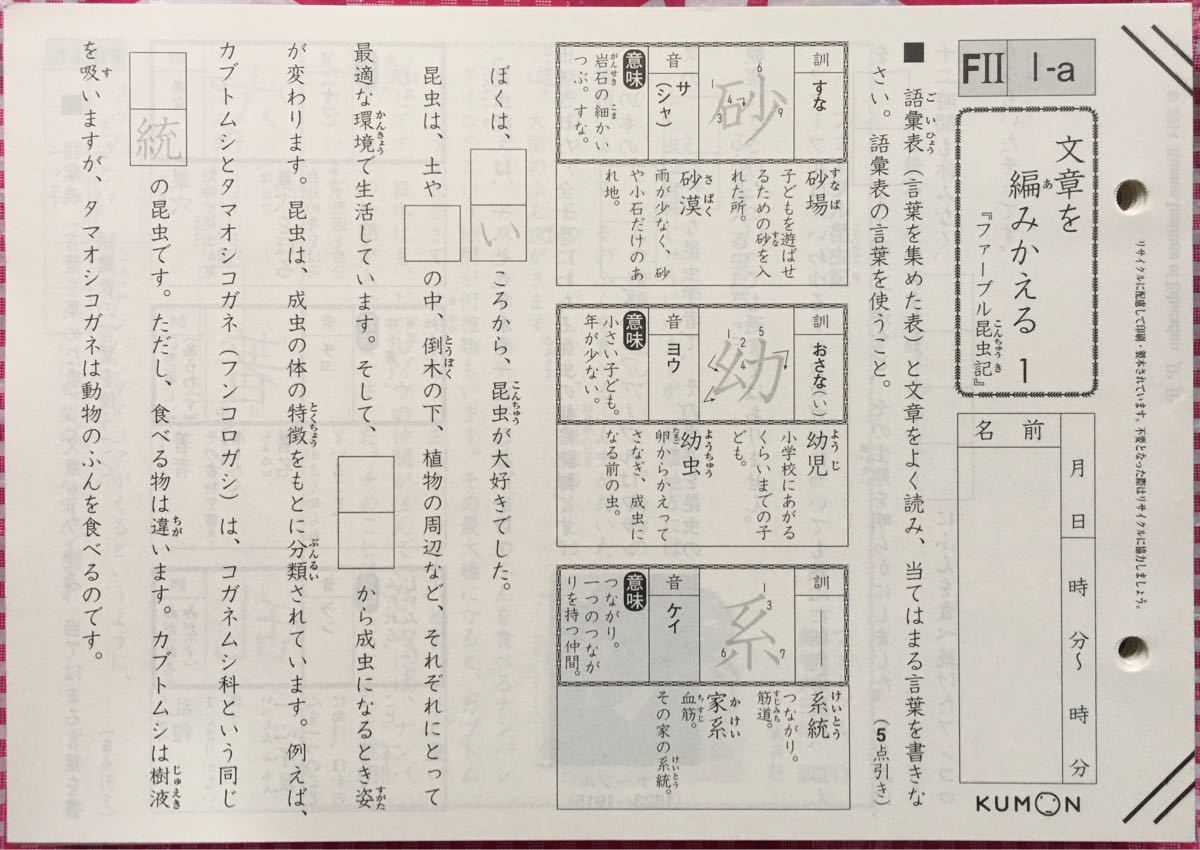 リサイクルに配慮して印刷・製本されています。不要となった際はリサイクルに協力しましょう。
FⅡ 1-a
文章を
編みかえる 1
あ
『ファーブル昆虫記』
こんちゅうき
名前
月 日
時 分～ 時 分
KUMON
■ 語彙表(言葉を集めた表)と文章をよく読み、当てはまる言葉を書きな
ごいひょう
さい。語彙表の言葉を使うこと。
(5点引き)
訓 すな
砂
音 サ (シャ)
意味
岩石の細かい
がんせき こま
つぶ。すな。
砂場
すなば
子どもを遊ばせ
るための砂を入
すな
れた所。
砂漠
さばく
雨が少なく、砂
や小石だけのあ
れ地。
訓 おさな(い)
幼
音 ヨウ
意味
小さい子ども。
年が少ない。
幼児
ようじ
小学校にあがる
くらいまでの子
ども。
幼虫
ようちゅう
卵からかえって
たまご
さなぎ、成虫に
なる前の虫。
訓 ―
系
音 ケイ
意味
つながり。
一つのつなが
りを持つ仲間。
系統
けいとう
つながり。
筋道。
すじみち
家系
かけい
血筋。
ちすじ
その家の系統。
けいとう
ぼくは、 い ころから、昆虫が大好きでした。
こんちゅう
昆虫は、土や の中、倒木の下、植物の周辺など、それぞれにとって
とうぼく
最適な環境で生活しています。そして、 から成虫になるとき姿
かんきょう すがた
が変わります。昆虫は、成虫の体の特徴をもとに分類されています。例えば、
とくちょう ぶんるい
カブトムシとタマオシコガネ(フンコロガシ)は、コガネムシ科という同じ
統 の昆虫です。ただし、食べる物は違います。カブトムシは樹液
ちが じゅえき
を吸いますが、タマオシコガネは動物のふんを食べるのです。
す